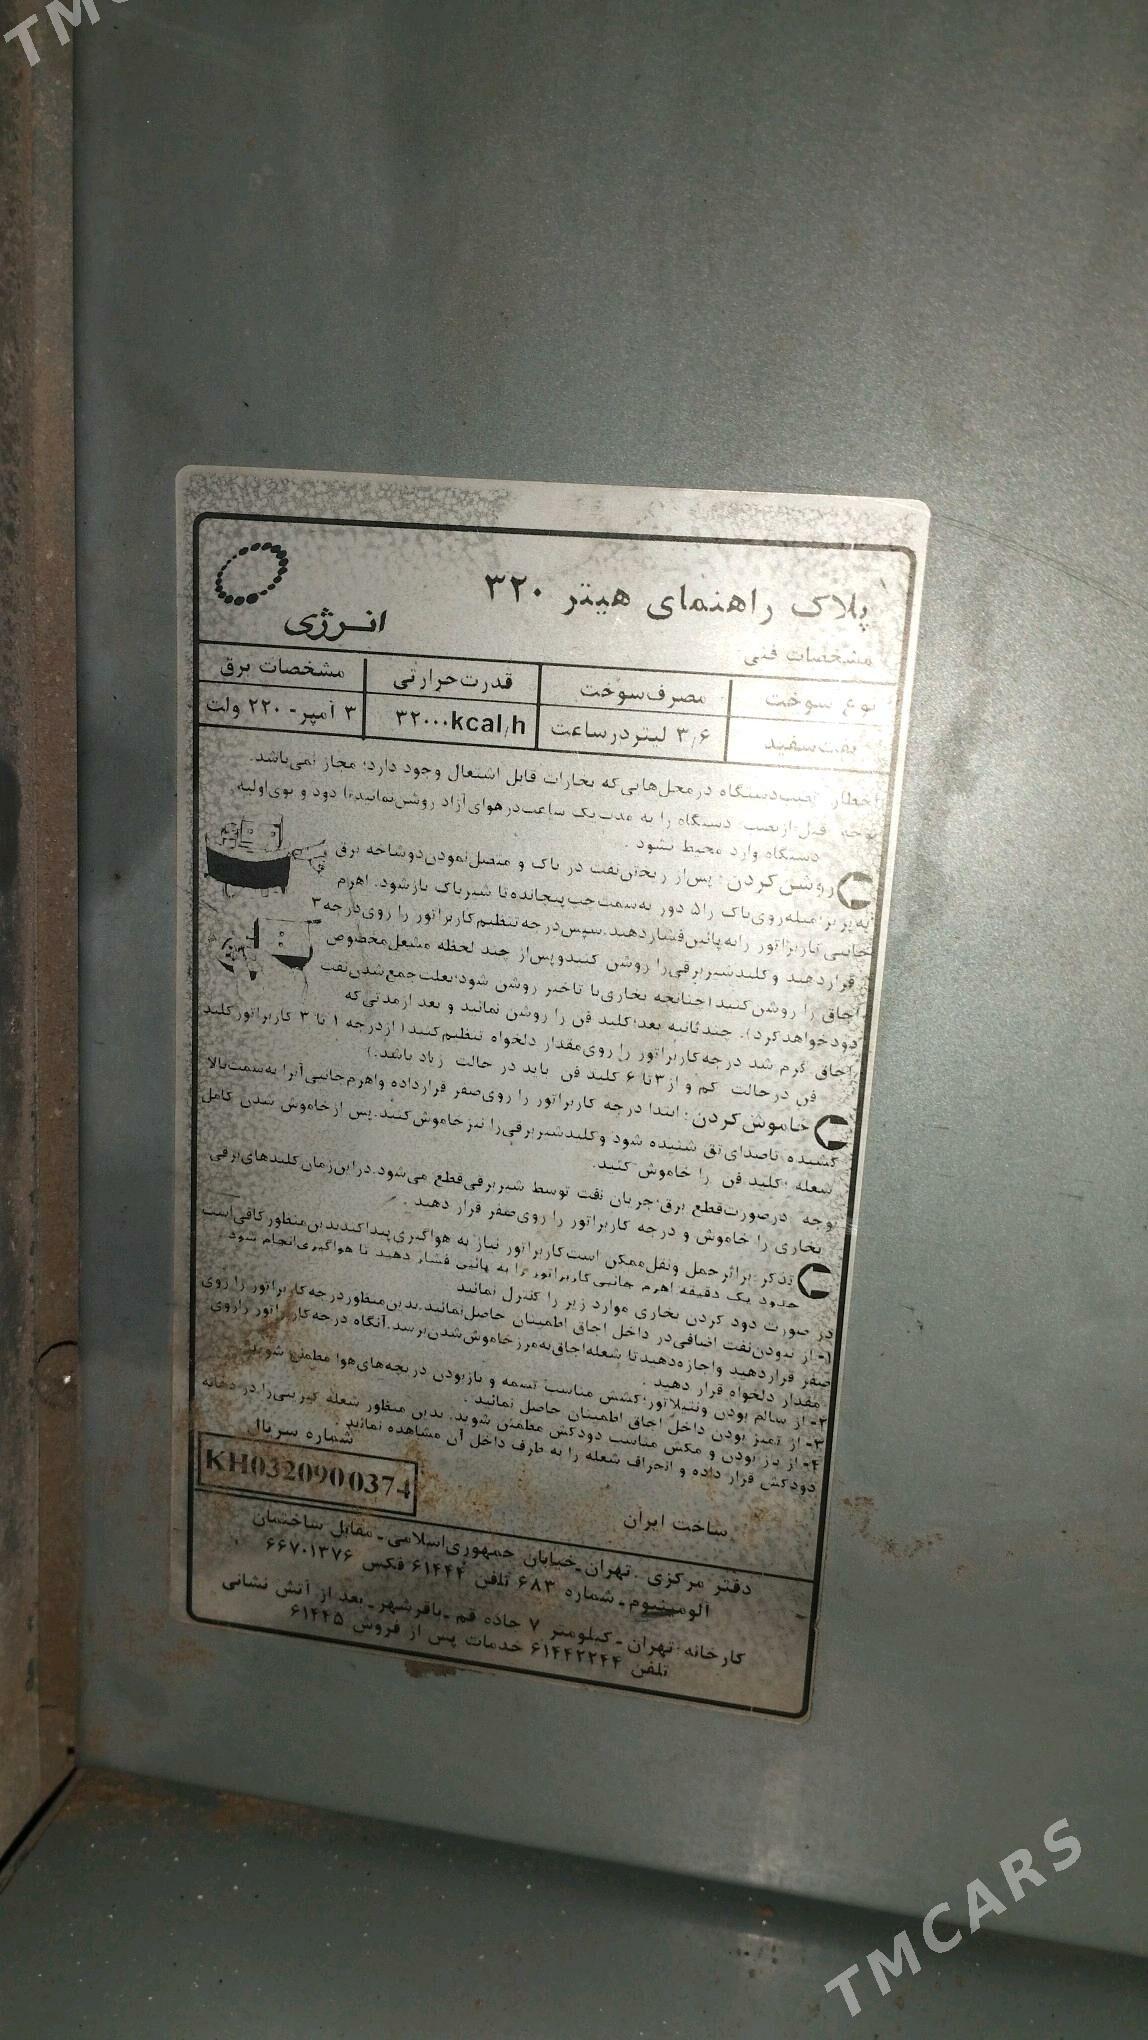 TMCARS
پلاک راهنمای هیتر ۳۲۰
انرژی
مشخصات فنی
نوع سوخت مصرف سوخت قدرت حرارتی مشخصات برق
نفت سفید ۳٫۶ لیتر در ساعت ۳۲۰۰۰kcal/h ۳ آمپر - ۲۲۰ ولت
اخطار: نصب دستگاه در محل‌هایی که بخارات قابل اشتعال وجود دارد؛ مجاز نمی‌باشد.
توجه: قبل از نصب دستگاه را به مدت یک ساعت در هوای آزاد روشن نمائید تا دود و بوی اولیه
دستگاه وارد محیط نشود.
روشن کردن: پس از ریختن نفت در باک و متصل نمودن دو شاخه برق
به پریز؛ میله روی باک را ۵ دور به سمت چپ پیچانده تا شیر باک باز شود. اهرم
جانبی کاربراتور را به پائین فشار دهید. سپس درجه تنظیم کاربراتور را روی درجه ۳
قرار دهید و کلید شیر برقی را روشن کنید و پس از چند لحظه مشعل مخصوص
اجاق را روشن کنید (چنانچه بخاری با تاخیر روشن شود؛ بعلت جمع شدن نفت
دود خواهد کرد). چند ثانیه بعد؛ کلید فن را روشن نمائید و بعد از مدتی که
اجاق گرم شد درجه کاربراتور را روی مقدار دلخواه تنظیم کنید (از درجه ۱ تا ۳ کاربراتور کلید
فن در حالت کم و از ۳ تا ۶ کلید فن باید در حالت زیاد باشد.)
خاموش کردن: ابتدا درجه کاربراتور را روی صفر قرار داده و اهرم جانبی آنرا به سمت بالا
کشیده تا صدای تق شنیده شود و کلید شیر برقی را نیز خاموش کنید. پس از خاموش شدن کامل
شعله؛ کلید فن را خاموش کنید.
توجه: در صورت قطع برق؛ جریان نفت توسط شیر برقی قطع می‌شود. در این زمان کلیدهای برقی
بخاری را خاموش و درجه کاربراتور را روی صفر قرار دهید.
تذکر: براثر حمل و نقل ممکن است کاربراتور نیاز به هواگیری پیدا کند بدین منظور کافی است
حدود یک دقیقه اهرم جانبی کاربراتور را به پائین فشار دهید تا هواگیری انجام شود.
در صورت دود کردن بخاری موارد زیر را کنترل نمائید
۱- از نبودن نفت اضافی در داخل اجاق اطمینان حاصل نمائید. بدین منظور درجه کاربراتور را روی
صفر قرار دهید و اجازه دهید تا شعله اجاق به مرز خاموش شدن برسد. آنگاه درجه کاربراتور را روی
مقدار دلخواه قرار دهید.
۲- از سالم بودن ونتیلاتور؛ کشش مناسب تسمه و باز بودن دریچه‌های هوا مطمئن شوید.
۳- از تمیز بودن داخل اجاق اطمینان حاصل نمائید.
۴- از باز بودن و مکش مناسب دودکش مطمئن شوید. بدین منظور شعله کبریتی را در دهانه
دودکش قرار داده و انحراف شعله را به طرف داخل آن مشاهده نمائید.
شماره سریال
KH0320900374
ساخت ایران
دفتر مرکزی: تهران - خیابان جمهوری اسلامی - مقابل ساختمان
آلومینیوم - شماره ۶۸۳ تلفن ۶۱۴۴۴ فکس ۶۶۷۰۱۳۷۶
کارخانه: تهران - کیلومتر ۷ جاده قم - باقرشهر - بعد از آتش نشانی
تلفن ۶۱۴۴۲۲۴۴ خدمات پس از فروش ۶۱۴۴۵
TMCARS